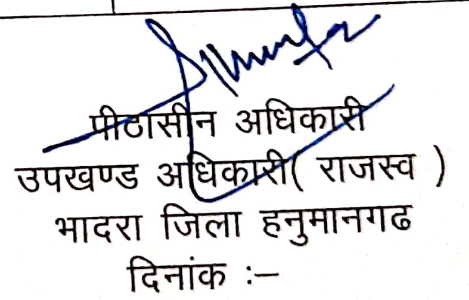 पीटासीन अधिकारी
उपखण्ड अधिकारी( राजस्व )
भादरा जिला हनुमानगढ
दिनांक :–